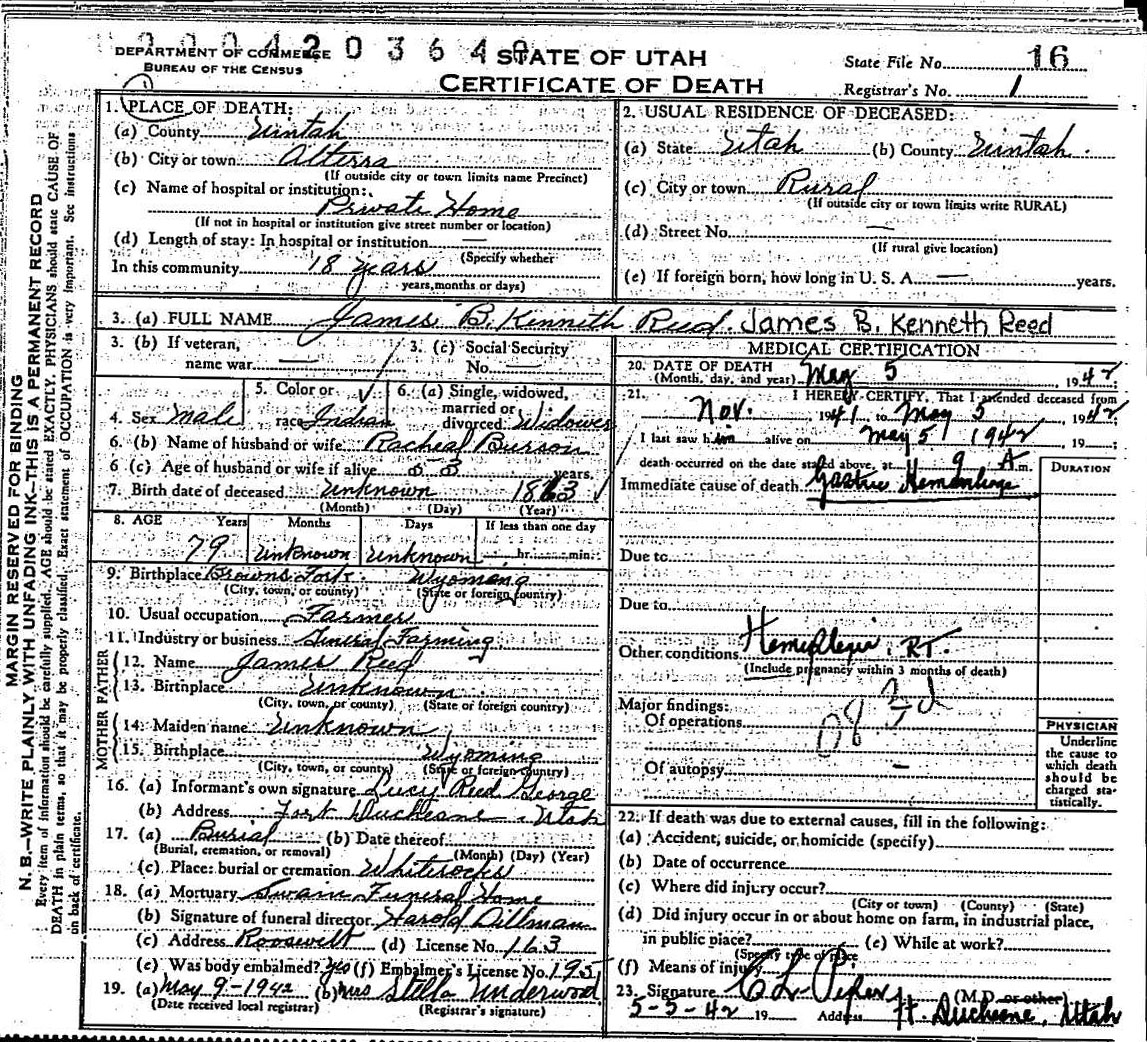 0004203640
DEPARTMENT OF COMMERCE
BUREAU OF THE CENSUS
STATE OF UTAH
CERTIFICATE OF DEATH
State File No. 16
Registrar's No. 1
MARGIN RESERVED FOR BINDING
N. B.—WRITE PLAINLY WITH UNFADING INK—THIS IS A PERMANENT RECORD
Every item of information should be carefully supplied. AGE should be stated EXACTLY. PHYSICIANS should state CAUSE OF
DEATH in plain terms, so that it may be properly classified. Exact statement of OCCUPATION is very important. See instructions
on back of certificate.
1. PLACE OF DEATH:
(a) County Uintah
(b) City or town Alterra
(If outside city or town limits name Precinct)
(c) Name of hospital or institution:
Private Home
(If not in hospital or institution give street number or location)
(d) Length of stay: In hospital or institution —
(Specify whether
In this community 18 years
years, months or days)
2. USUAL RESIDENCE OF DECEASED:
(a) State Utah (b) County Uintah
(c) City or town Rural
(If outside city or town limits write RURAL)
(d) Street No. —
(If rural give location)
(e) If foreign born, how long in U. S. A. — years.
3. (a) FULL NAME James B. Kenneth Reed. James B. Kenneth Reed
3. (b) If veteran,
name war —
3. (c) Social Security
No. —
4. Sex Male
5. Color or
race Indian
6. (a) Single, widowed,
married or
divorced Widower
6. (b) Name of husband or wife Racheal Burson
6 (c) Age of husband or wife if alive 53 years.
7. Birth date of deceased Unknown 1863
(Month) (Day) (Year)
8. AGE Years Months Days If less than one day
79 Unknown Unknown hr. min.
9. Birthplace Browns Fork Wyomeng
(City, town, or county) (State or foreign country)
10. Usual occupation Farmer
11. Industry or business General Farming
FATHER
12. Name James Reed
13. Birthplace Unknown
(City, town, or county) (State or foreign country)
MOTHER
14. Maiden name Unknown
15. Birthplace Wyoming
(City, town, or county) (State or foreign country)
16. (a) Informant's own signature Lucy Reed George
(b) Address Fort Duchesne Utah
17. (a) Burial (b) Date thereof
(Burial, cremation, or removal) (Month) (Day) (Year)
(c) Place: burial or cremation Whiterocks
18. (a) Mortuary Swain Funeral Home
(b) Signature of funeral director Harold Dillman
(c) Address Roosevelt (d) License No. 163
(e) Was body embalmed? Yes (f) Embalmer's License No. 195
19. (a) May 9-1942 (b) Mrs Stella Underwood
(Date received local registrar) (Registrar's signature)
MEDICAL CERTIFICATION
20. DATE OF DEATH
(Month, day, and year) May 5, 1942
21. I HEREBY CERTIFY, That I attended deceased from
Nov., 1941 to May 5, 1942
I last saw him alive on May 5 1942 19
death occurred on the date stated above, at 9 A m.
DURATION
Immediate cause of death Gastric Hemorrhage
Due to
Due to
Other conditions Hemiplegia RT.
(Include pregnancy within 3 months of death)
Major findings:
Of operations
Of autopsy —
PHYSICIAN
Underline
the cause to
which death
should be
charged sta-
tistically.
22. If death was due to external causes, fill in the following:
(a) Accident, suicide, or homicide (specify)
(b) Date of occurrence
(c) Where did injury occur?
(City or town) (County) (State)
(d) Did injury occur in or about home on farm, in industrial place,
in public place? (e) While at work?
(Specify type of place
(f) Means of injury
23. Signature C L Piper (M.D. or other)
5-5-42 19 Address Ft. Duchesne, Utah